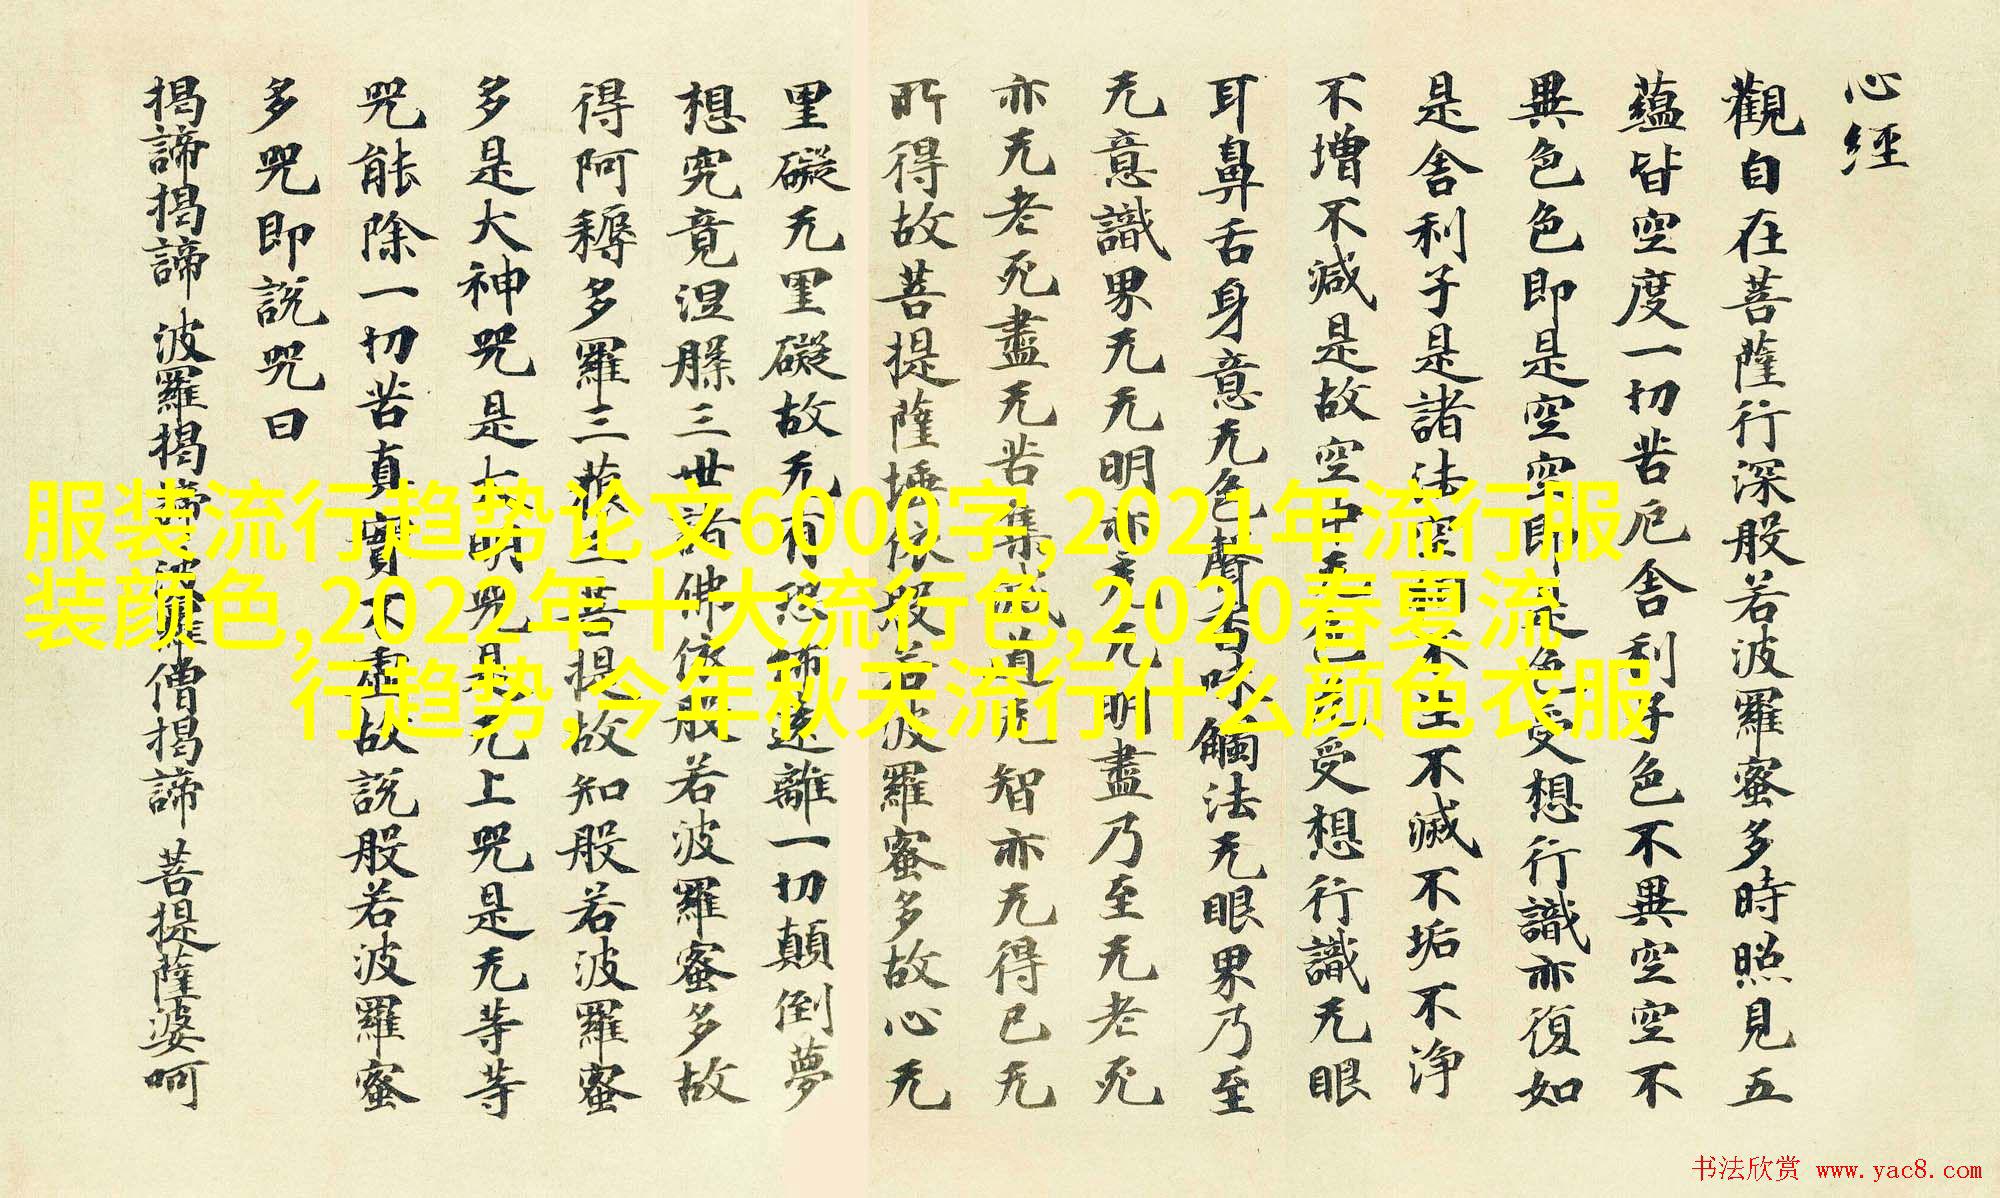 心經
觀自在菩薩行深般若波羅蜜多時照見五
蘊皆空度一切苦厄舍利子色不異空空不
異色色即是空空即是色受想行識亦復如
是舍利子是諸法空相不生不滅不垢不浄
不增不減是故空中无色无受想行識无眼
耳鼻舌身意无色聲香味觸法无眼界乃至
无意識界无无明亦无无明盡乃至无老死
亦无老死盡无苦集滅道无智亦无得已无
所得故菩提薩埵依般若波羅蜜多故心无
罣礙无罣礙故无有恐怖遠離一切顛倒夢
想究竟涅槃三世諸佛依般若波羅蜜多故
得阿耨多羅三藐三菩提故知般若波羅蜜
多是大神咒是大明咒是无上咒是无等等
咒能除一切苦真實不虛故說般若波羅蜜
多咒即說咒曰
揭諦揭諦 波羅揭諦 波羅僧揭諦 菩提薩婆呵
服装流行趋势论文6000字,2021年流行服
装颜色,2022年十大流行色,2020春夏流
行趋势,今年秋天流行什么颜色衣服
书法欣赏 www.yac8.com